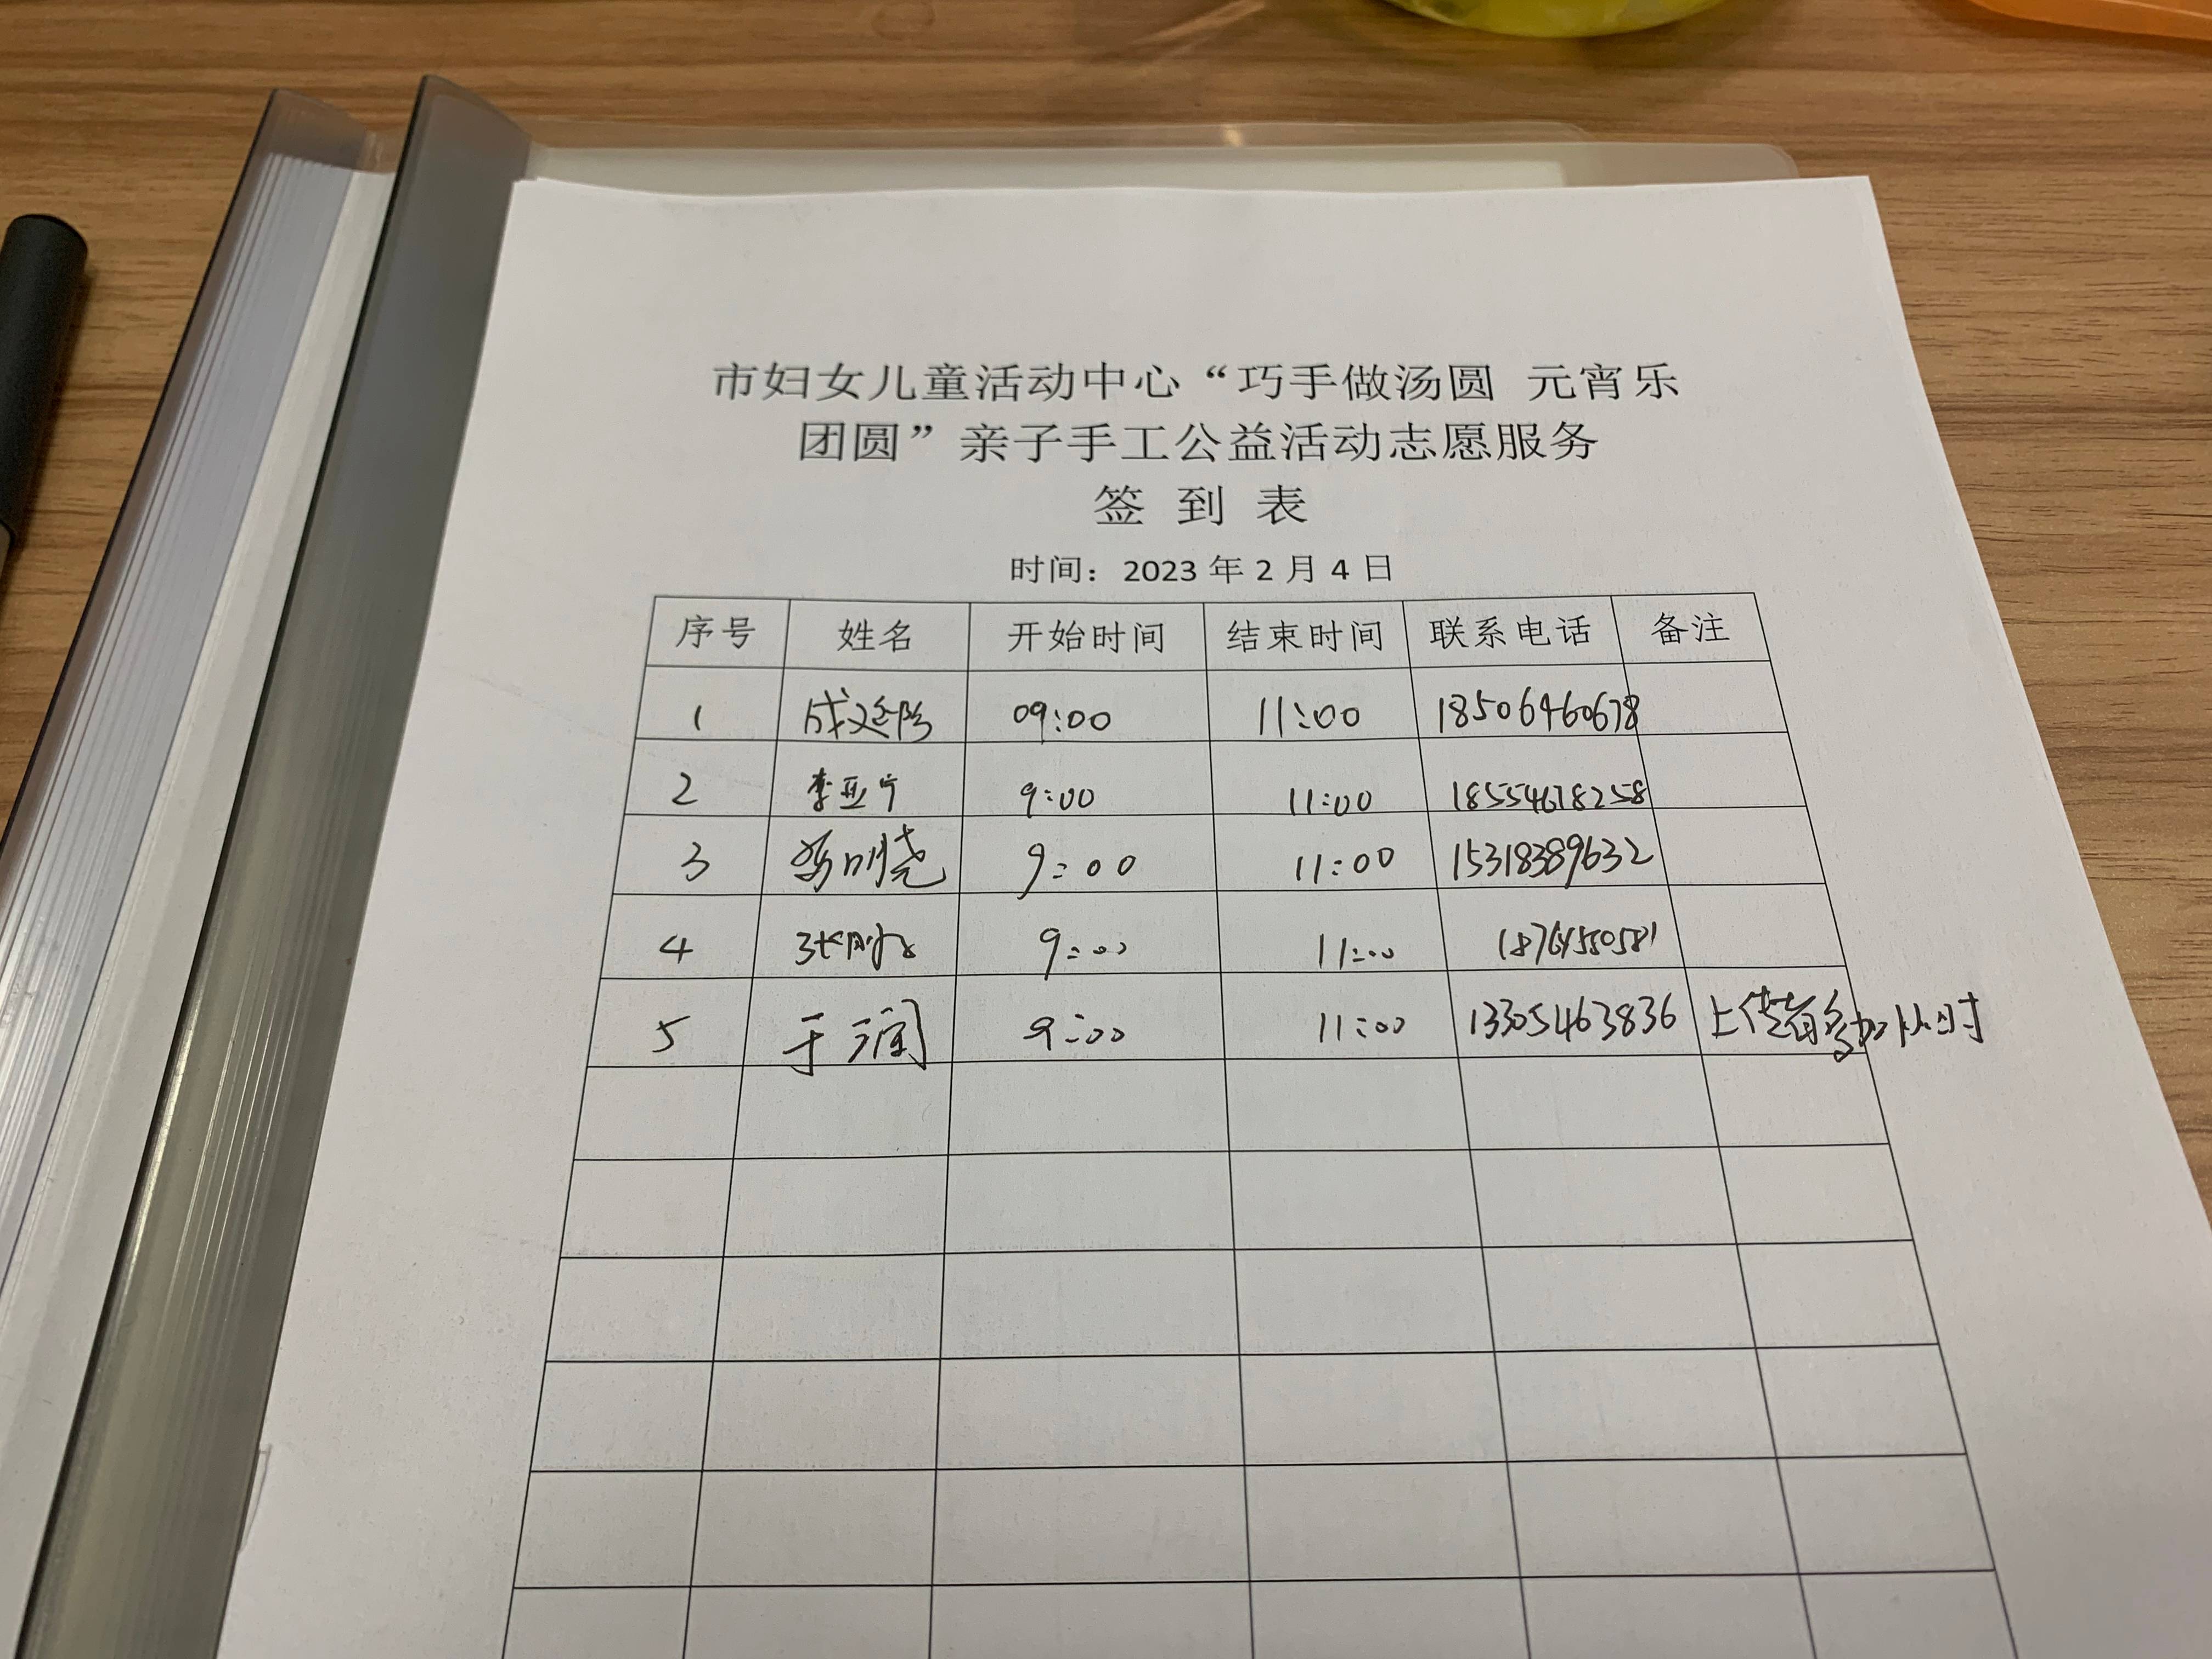 市妇女儿童活动中心“巧手做汤圆 元宵乐
团圆”亲子手工公益活动志愿服务
签 到 表
时间：2023 年 2 月 4 日
序号 姓名 开始时间 结束时间 联系电话 备注
1 09:00 11:00 18506460678
2 李亚宁 9:00 11:00 18554678258
3 9:00 11:00 15318389632
4 9:00 11:00
5 于 9:00 11:00 13305463836 小时